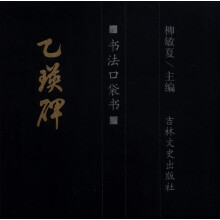 柳敏夏／主编
吉林文史出版社
书法口袋书
乙瑛碑